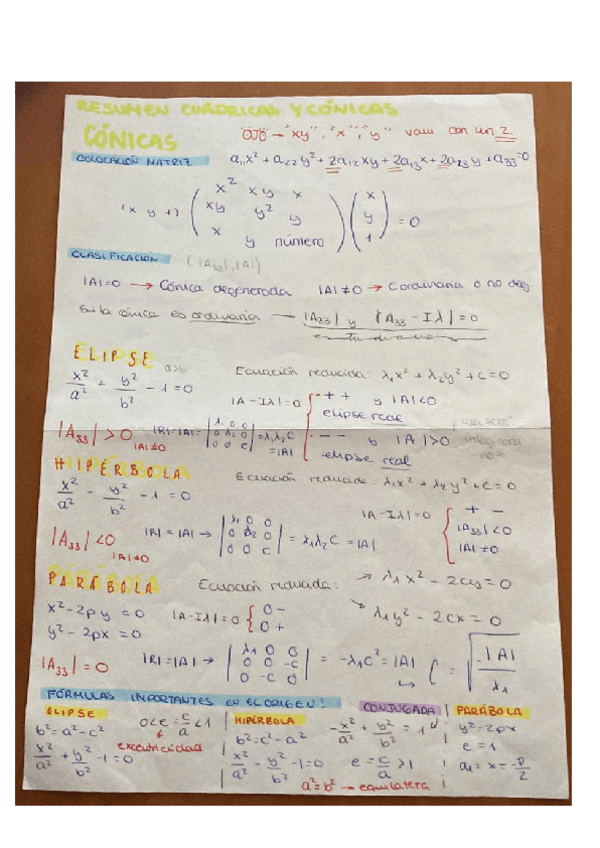 RESUMEN CUÁDRICAS Y CÓNICAS
CÓNICAS
OJO → "xy", "x", "y" van con un 2
COLOCACIÓN MATRIZ a₁₁x² + a₂₂y² + 2a₁₂xy + 2a₁₃x + 2a₂₃y + a₃₃=0
(x y 1) ( x² xy x
xy y² y
x y número ) ( x
y
1 ) = 0
CLASIFICACIÓN (|A₃₃|, |A|)
|A|=0 → Cónica degenerada |A|≠0 → C ordinaria o no deg
Si la cónica es ordinaria → |A₃₃| y |A₃₃ - Iλ| = 0
ELIPSE a>b
x²/a² + y²/b² - 1 = 0
Ecuación reducida: λ₁x² + λ₂y² + c = 0
|A - Iλ| = 0 { + + y |A|<0
elipse real
- - y |A|>0
elipse real
|A₃₃| > 0 |A|≠0
|R|=|A|= | λ₁ 0 0
0 λ₂ 0
0 0 c | = λ₁λ₂c = |A|
HIPÉRBOLA
x²/a² - y²/b² - 1 = 0
Ecuación reducida: λ₁x² + λ₂y² + c = 0
|A - Iλ| = 0 { + -
|A₃₃| < 0
|A| ≠ 0
|A₃₃| < 0 |A|≠0
|R| = |A| → | λ₁ 0 0
0 λ₂ 0
0 0 c | = λ₁λ₂c = |A|
PARÁBOLA
Ecuación reducida: → λ₁x² - 2cy = 0
λ₁y² - 2cx = 0
x² - 2py = 0
y² - 2px = 0
|A - Iλ| = 0 { 0 -
0 +
|A₃₃| = 0
|R| = |A| → | λ₁ 0 0
0 0 -c
0 -c 0 | = -λ₁c² = |A|
↳ C = √(-|A|/λ₁)
FÓRMULAS IMPORTANTES EN EL ORIGEN!
ELIPSE
b² = a² - c²
0<e = c/a <1
excentricidad
x²/a² + y²/b² - 1 = 0
HIPÉRBOLA
b² = c² - a²
x²/a² - y²/b² - 1 = 0
CONJUGADA
-x²/a² + y²/b² = 1
e = c/a > 1
a² = b² → equilatera
PARÁBOLA
y² = 2px
e = 1
d₁ = x = -p/2